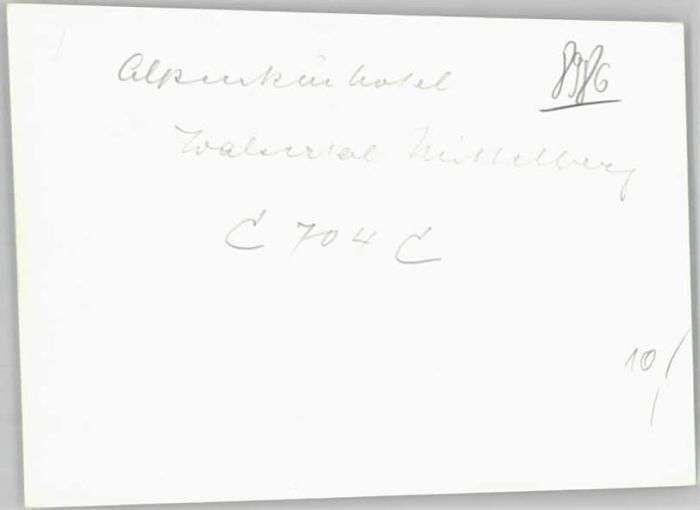 Alpenkurhotel
8986
Walsertal Mittelberg
C 704 C
10/